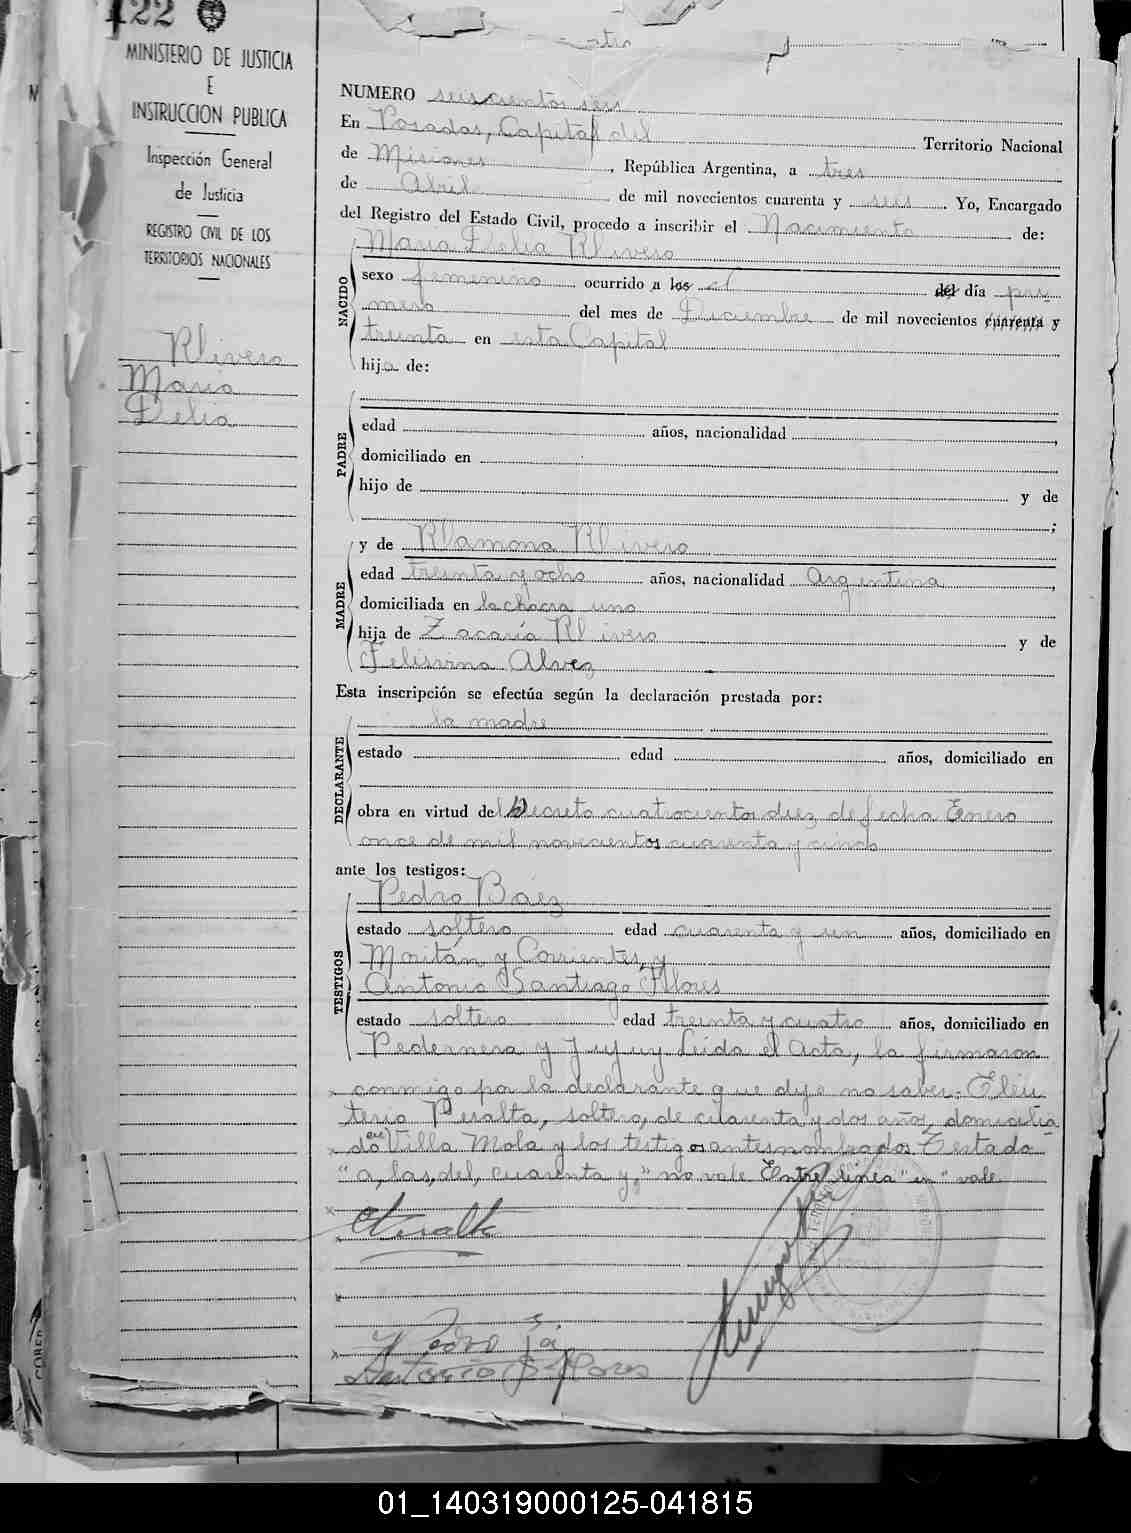 122
MINISTERIO DE JUSTICIA
E
INSTRUCCION PUBLICA
Inspección General
de Justicia
REGISTRO CIVIL DE LOS
TERRITORIOS NACIONALES
Rivero
Maria
Delia
NUMERO seiscientos seis
En Posadas, Capital del Territorio Nacional
de Misiones, República Argentina, a tres
de Abril de mil novecientos cuarenta y seis. Yo, Encargado
del Registro del Estado Civil, procedo a inscribir el Nacimiento de:
Maria Delia Rivero
NACIDO
sexo femenino ocurrido a las el del día pri
mero del mes de Diciembre de mil novecientos cuarenta y
treinta en esta Capital
hija de:
PADRE
edad años, nacionalidad ,
domiciliado en
hijo de y de
;
MADRE
y de Ramona Rivero
edad treinta y ocho años, nacionalidad Argentina,
domiciliada en la chacra uno
hija de Zacaría Rivero y de
Felisvina Alvez
Esta inscripción se efectúa según la declaración prestada por:
DECLARANTE
la madre
estado edad años, domiciliado en
obra en virtud del Decreto cuatrocientos diez de fecha Enero
once de mil novecientos cuarenta y cinco
ante los testigos:
TESTIGOS
Pedro Báez
estado soltero edad cuarenta y un años, domiciliado en
Moritán y Corrientes, y
Antonio Santiago Flores
estado soltero edad treinta y cuatro años, domiciliado en
Pedernera y Jujuy Leida el Acta, la firmaron
conmigo por la declarante que dijo no saber: Eleu
terio Peralta, soltero, de cuarenta y dos años, domicilia
do en Villa Mola y los testigos antesnombrados. Testado
"a, las, del, cuarenta y," no vale. Entre línea "en" vale.
EPeralta
Pedro
Antonio S Flores
01_140319000125-041815